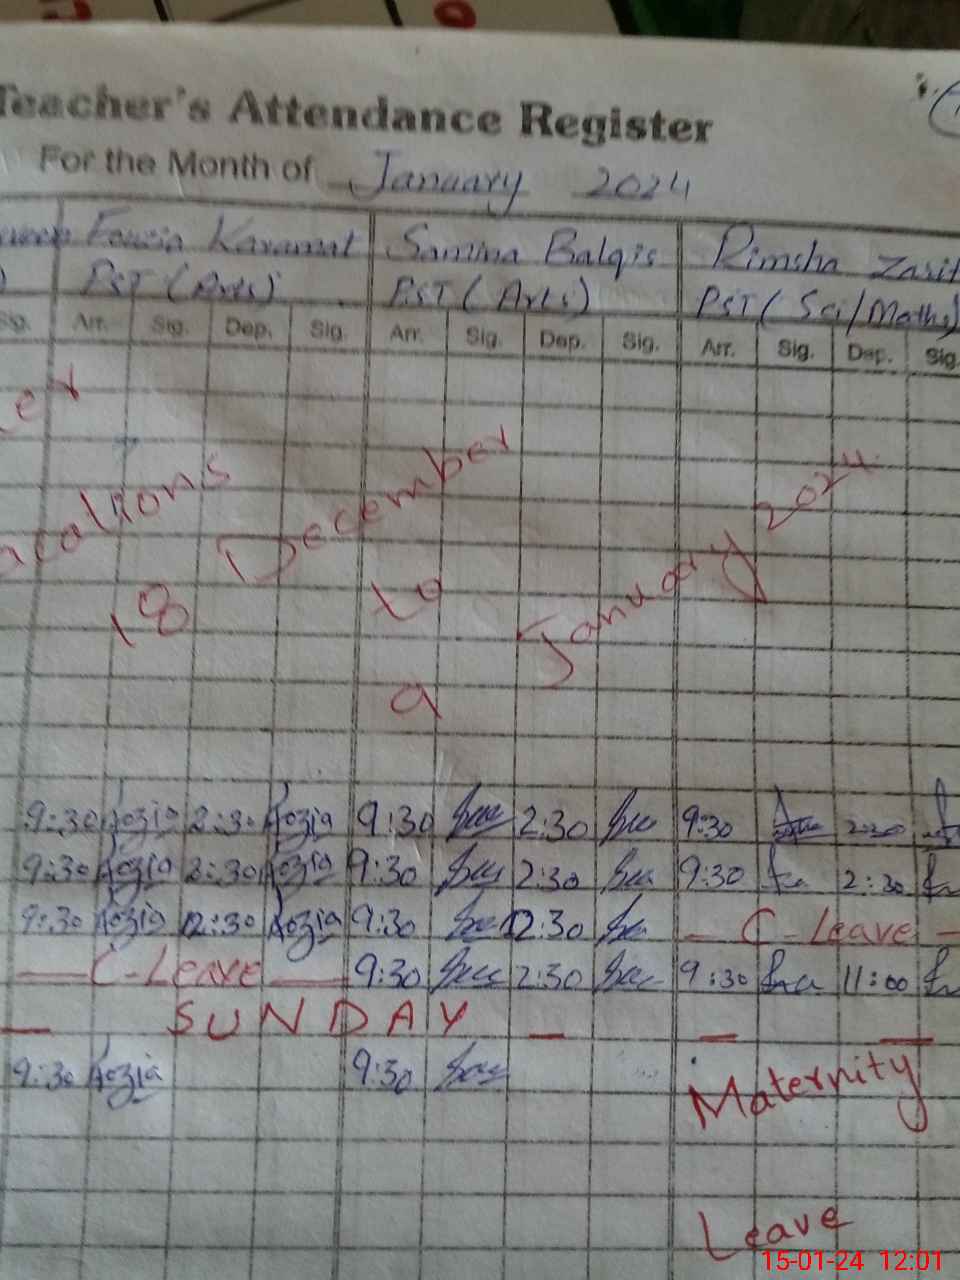 Teacher's Attendance Register
For the Month of January 2024
Fouzia Karamat Samina Balqis Rimsha
PST (Arts) PST (Arts) PST (Sci/Maths)
Sig. Arr. Sig. Dep. Sig. Arr. Sig. Dep. Sig. Arr. Sig. Dep. Sig.
18 December to 9 January 2024
9:30 fozia 2:30 fozia 9:30 2:30 9:30 2:30
9:30 fozia 2:30 fozia 9:30 2:30 9:30 2:30
9:30 fozia 12:30 fozia 9:30 12:30 — C-Leave —
— C-Leave — 9:30 2:30 9:30 11:00
— SUNDAY — — —
9:30 fozia 9:30 Maternity
Leave
15-01-24 12:01